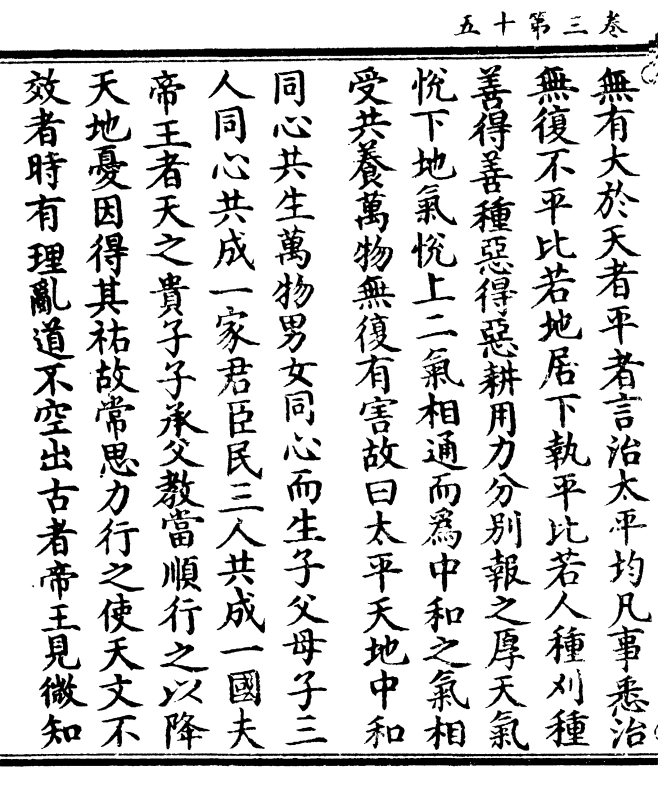 五十第三卷
無有大於天者平者言治太平均凡事悉治
無復不平比若地居下執平比若人種刈種
善得善種惡得惡耕用力分別報之厚天氣
悅下地氣悅上二氣相通而爲中和之氣相
受共養萬物無復有害故曰太平天地中和
同心共生萬物男女同心而生子父母子三
人同心共成一家君臣民三人共成一國夫
帝王者天之貴子子承父教當順行之以降
天地憂因得其祐故常思力行之使天文不
效者時有理亂道不空出古者帝王見微知